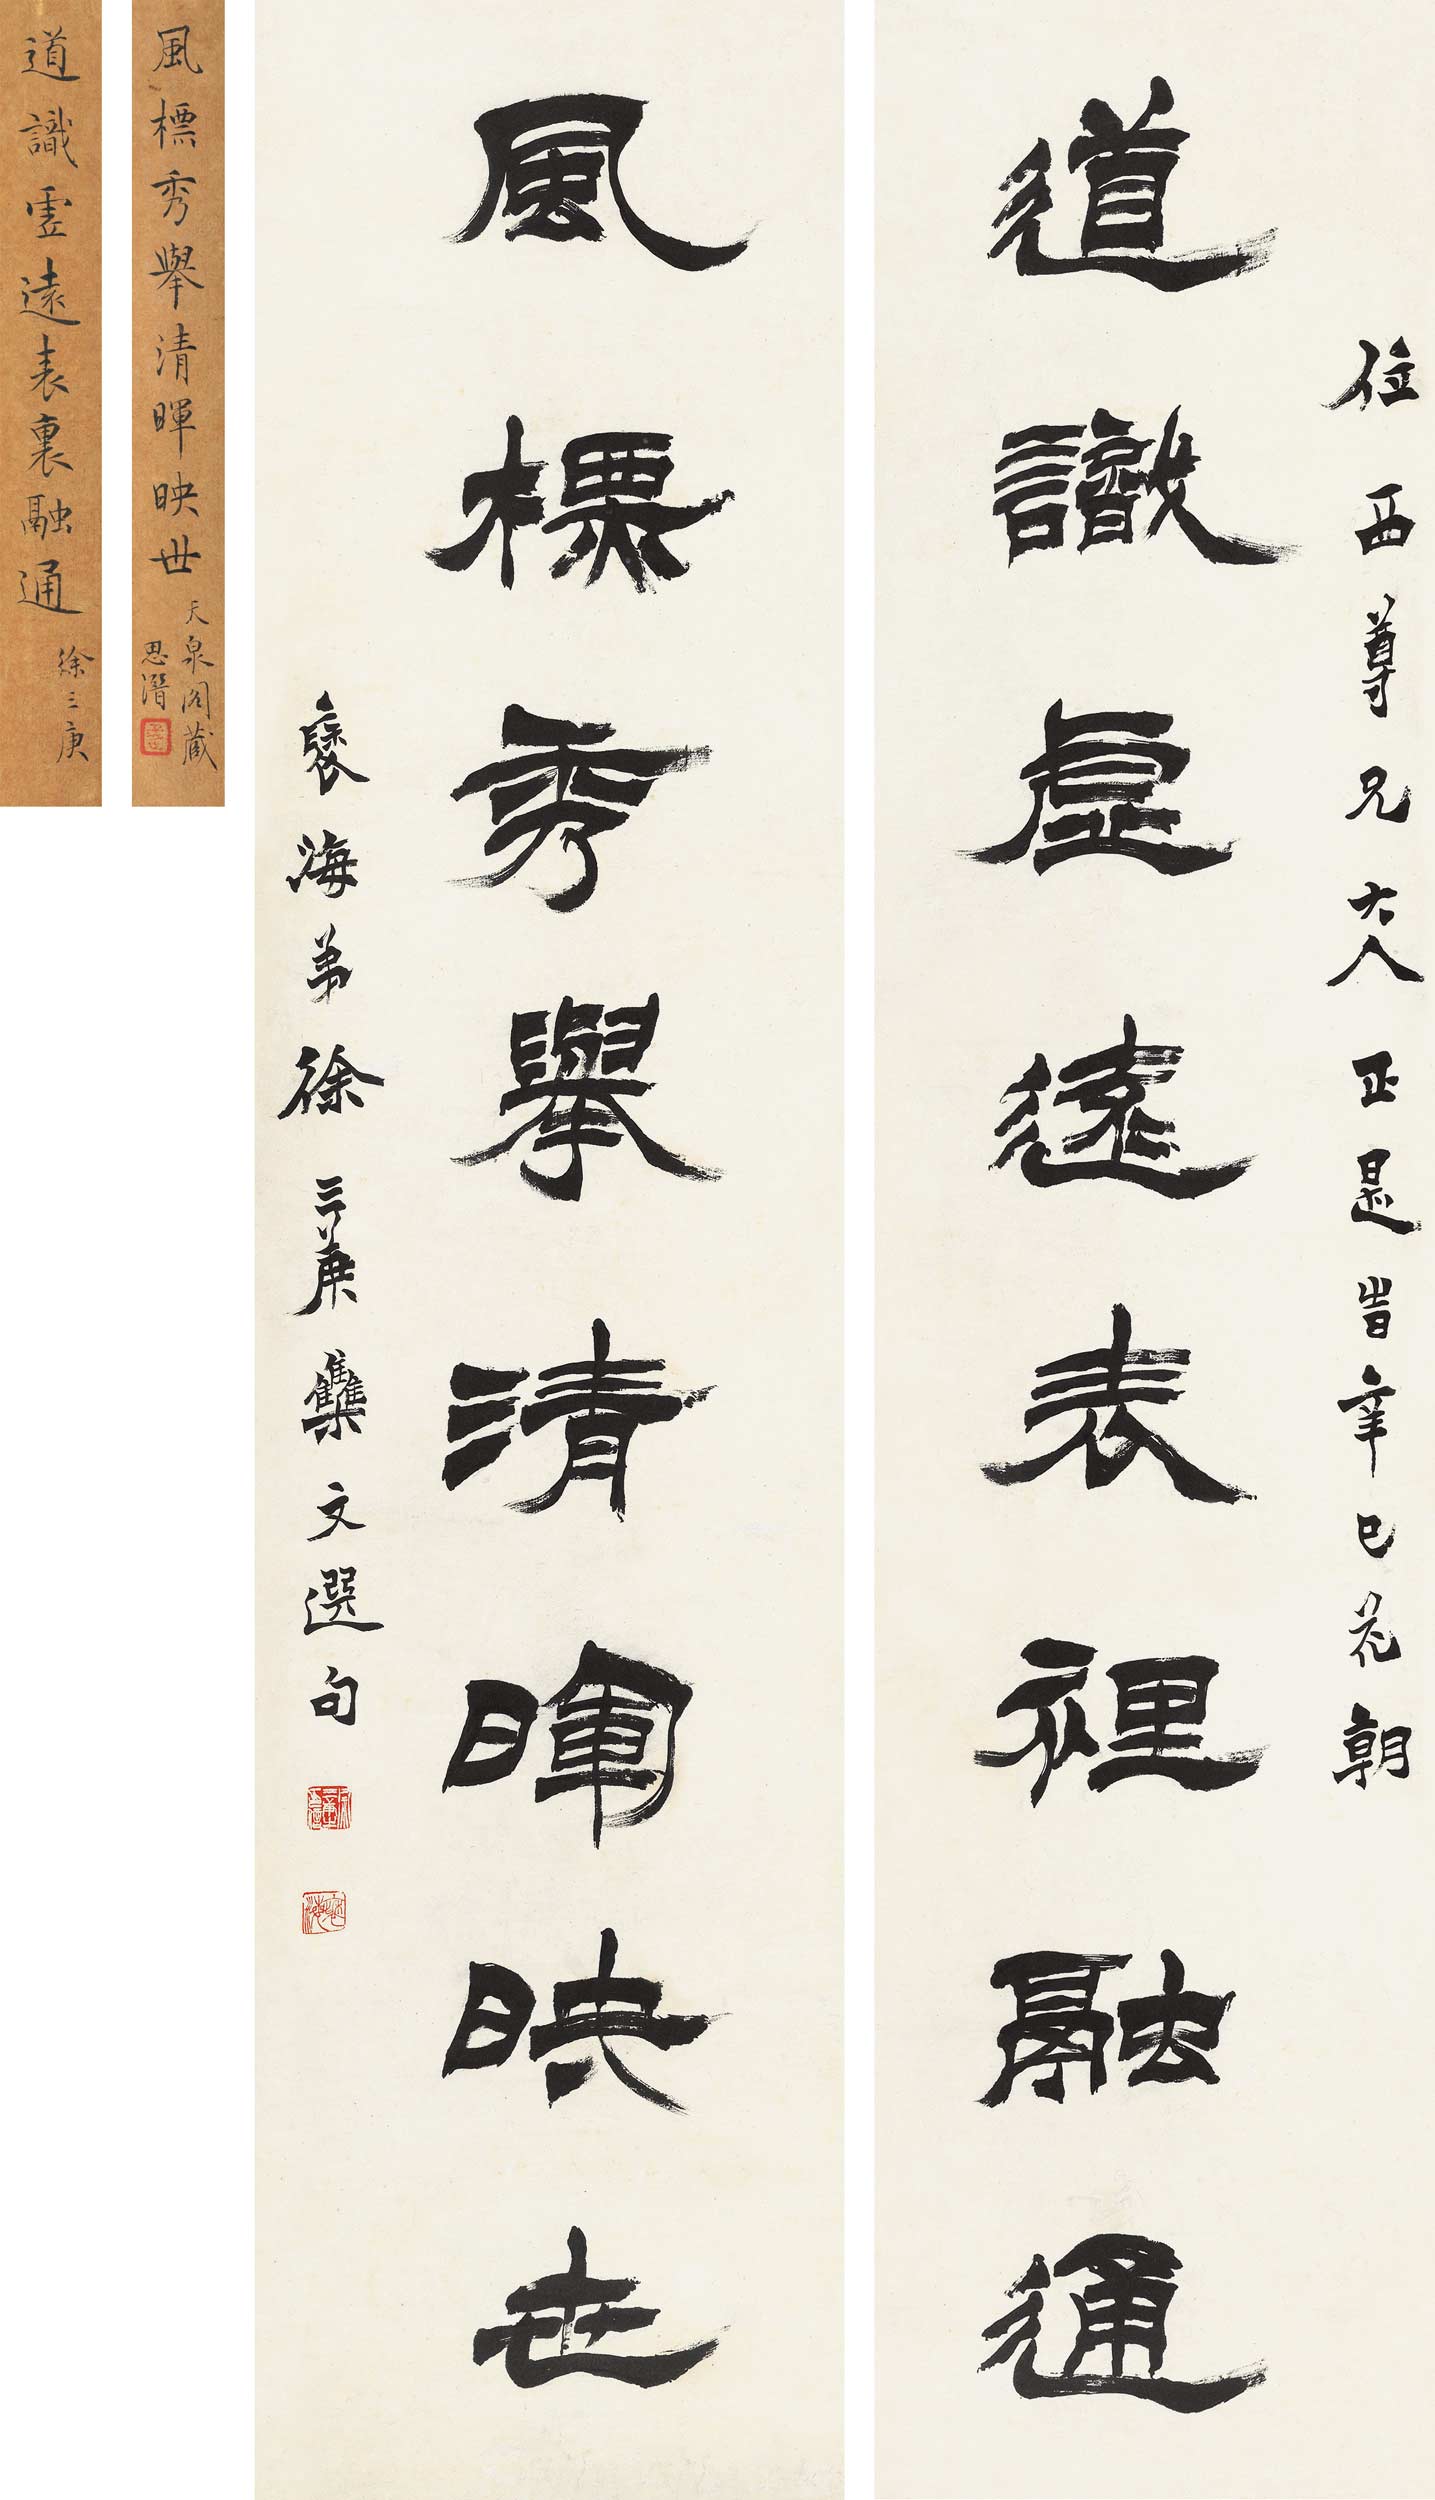 任西尊兄大人正是時辛巳花朝
道識虛遠表裡融通
風標秀舉清暉映世
褎海弟徐三庚集文選句
風標秀舉清暉映世
天泉閣藏
思潛
道識虛遠表裏融通
徐三庚